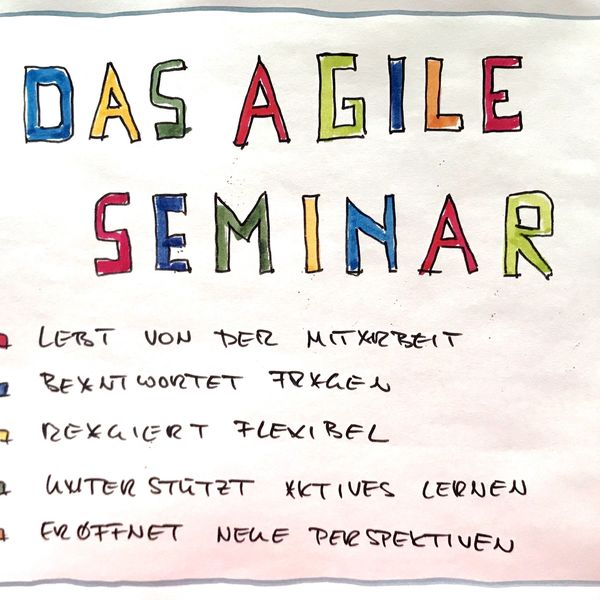 DAS AGILE
SEMINAR
LEBT VON DER MITARBEIT
BEANTWORTET FRAGEN
REAGIERT FLEXIBEL
UNTERSTÜTZT AKTIVES LERNEN
ERÖFFNET NEUE PERSPEKTIVEN